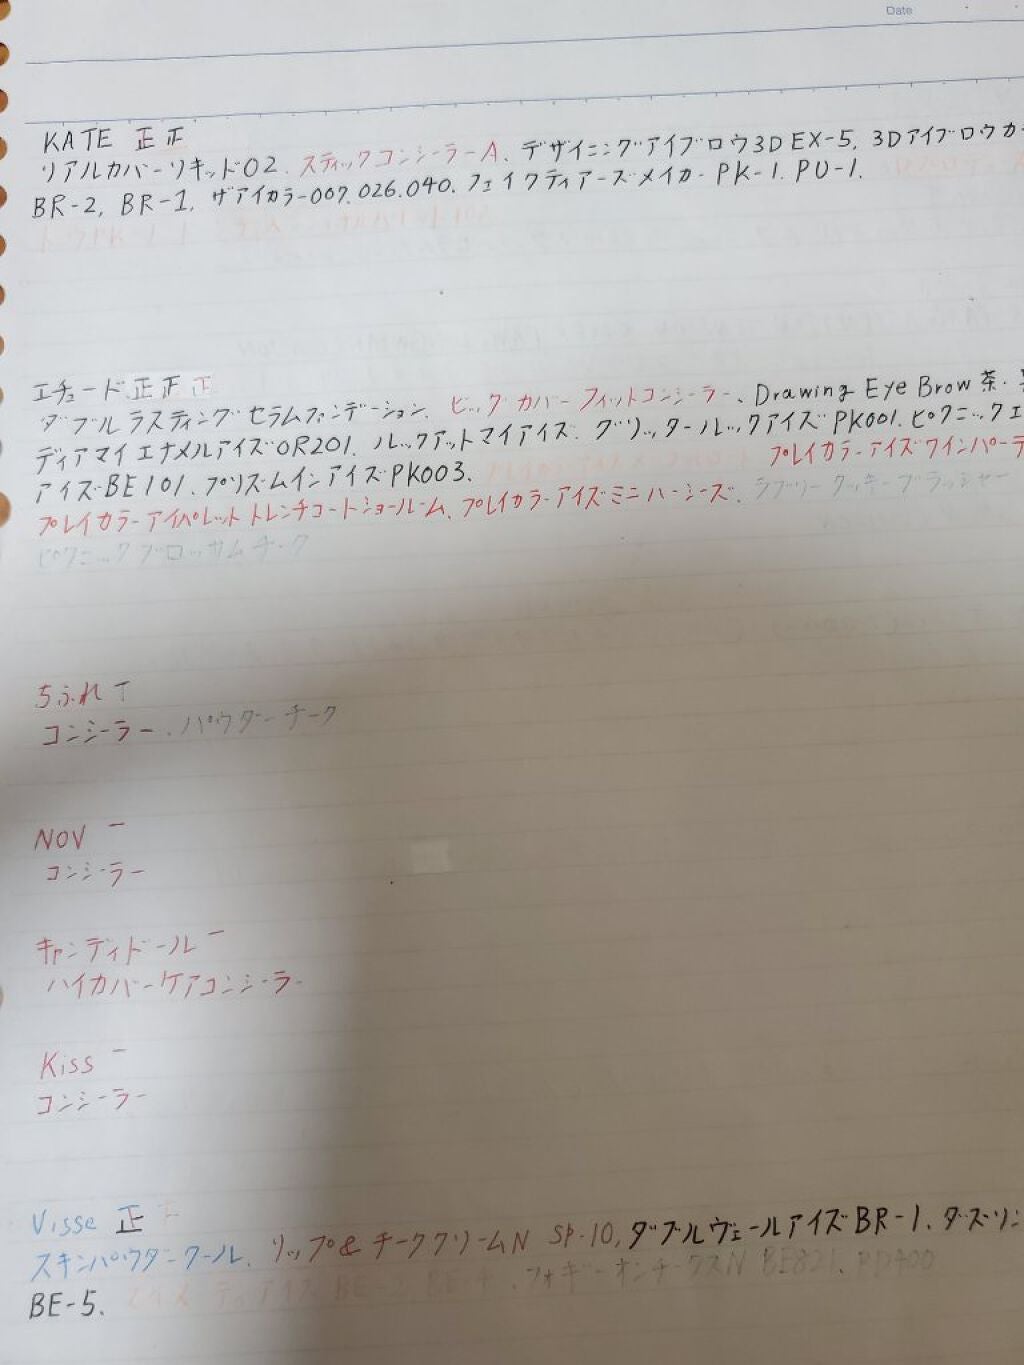 Date
KATE 正正
リアルカバーリキッド02. スティックコンシーラーA、デザイニングアイブロウ3D EX-5, 3Dアイブロウカ
BR-2, BR-1, ザアイカラー007.026.040. フェイクティアーズメイカーPK-1. PU-1.
エチュード 正正正
ダブルラスティングセラムファンデーション、ビッグカバーフィットコンシーラー、Drawing Eye Brow 茶・
ディアマイエナメルアイズOR201. ルックアットマイアイズ. グリッタールックアイズPK001. ピクニックエ
アイズBE101. プリズムインアイズPK003. プレイカラーアイズワインパーテ
プレイカラーアイパレットトレンチコートショールーム、プレイカラーアイズミニハーシーズ、ラブリークッキーブラッシャー
ピクニックブロッサムチーク
ちふれ T
コンシーラー. パウダーチーク
NOV 一
コンシーラー
キャンディドール 一
ハイカバーケアコンシーラー
Kiss 一
コンシーラー
Visse 正
スキンパウダークール、リップ&チーククリームN SP-10, ダブルヴェールアイズBR-1、ダズリン
BE-5、 BE-2, BE-4. フォギーオンチークスN BE821、